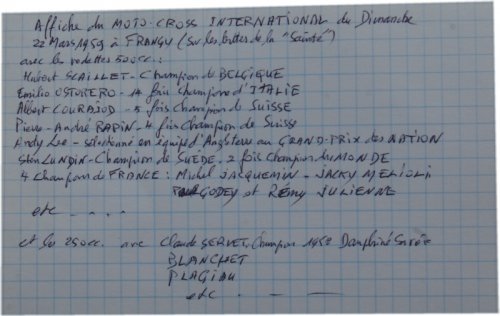 Affiche du MOTO-CROSS INTERNATIONAL du Dimanche
22 Mars 1959 à FRANGY (sur les buttes de la "Sainte")
avec les vedettes 500cc.:
Hubert SCAILLET - Champion de BELGIQUE
Emilio OSTORERO - 14 fois champion d'ITALIE
Albert COURAJOD - 5 fois Champion de SUISSE
Pierre-André RAPIN - 4 fois Champion de Suisse
Andy LEE - sélectionné en équipe d'Angleterre au GRAND-PRIX des NATION
Sten LUNDIN - Champion de SUEDE. 2 fois Champion du MONDE
4 Champions de FRANCE : Michel JACQUEMIN - JACKY MELIOLI
Paul GODEY et Rémy JULIENNE
etc . . . .
et les 250cc. avec Claude SERVET, Champion 1958 Dauphiné Savoie
BLANCHET
PLAGIAU
etc . — —